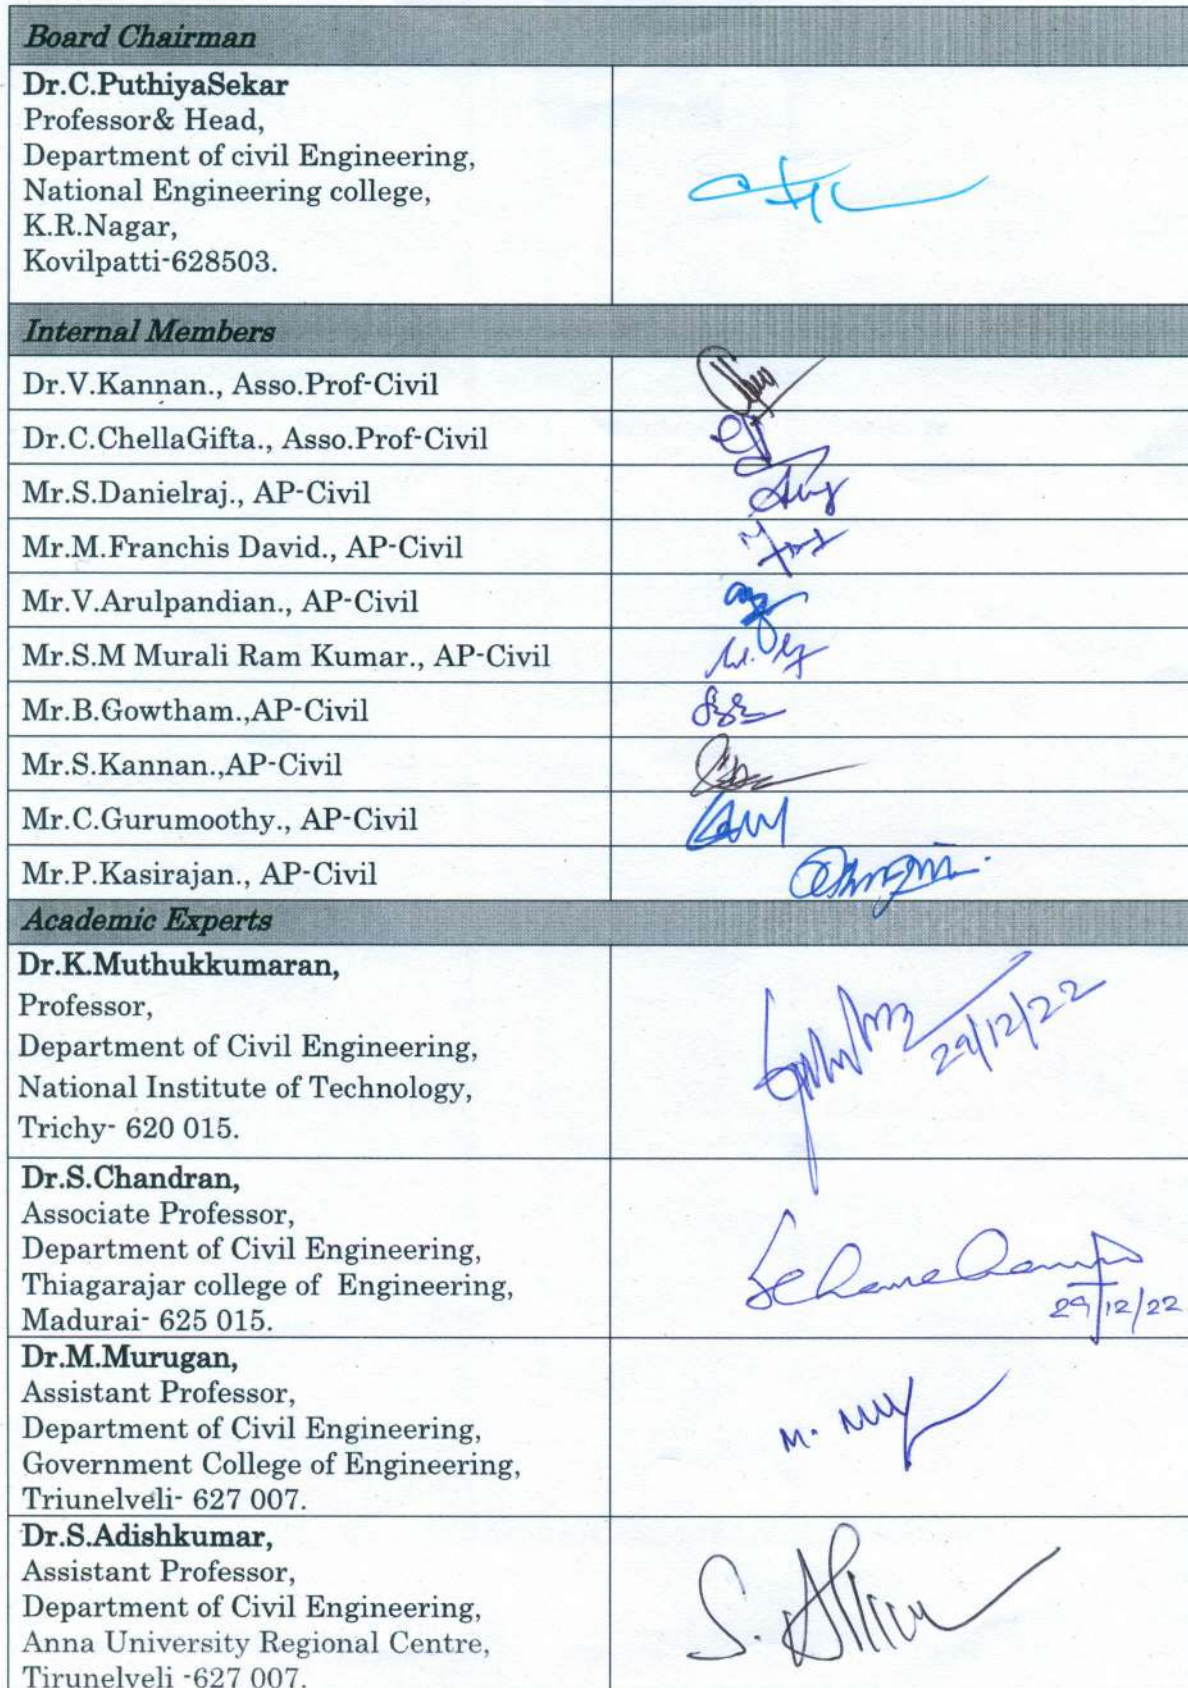 Board Chairman
Dr.C.PuthiyaSekar
Professor& Head,
Department of civil Engineering,
National Engineering college,
K.R.Nagar,
Kovilpatti-628503.
Internal Members
Dr.V.Kannan., Asso.Prof-Civil
Dr.C.ChellaGifta., Asso.Prof-Civil
Mr.S.Danielraj., AP-Civil
Mr.M.Franchis David., AP-Civil
Mr.V.Arulpandian., AP-Civil
Mr.S.M Murali Ram Kumar., AP-Civil
Mr.B.Gowtham.,AP-Civil
Mr.S.Kannan.,AP-Civil
Mr.C.Gurumoothy., AP-Civil
Mr.P.Kasirajan., AP-Civil
Academic Experts
Dr.K.Muthukkumaran,
Professor,
Department of Civil Engineering,
National Institute of Technology,
Trichy- 620 015.
29/12/22
Dr.S.Chandran,
Associate Professor,
Department of Civil Engineering,
Thiagarajar college of Engineering,
Madurai- 625 015.
29/12/22
Dr.M.Murugan,
Assistant Professor,
Department of Civil Engineering,
Government College of Engineering,
Triunelveli- 627 007.
M.
Dr.S.Adishkumar,
Assistant Professor,
Department of Civil Engineering,
Anna University Regional Centre,
Tirunelveli -627 007.
S.